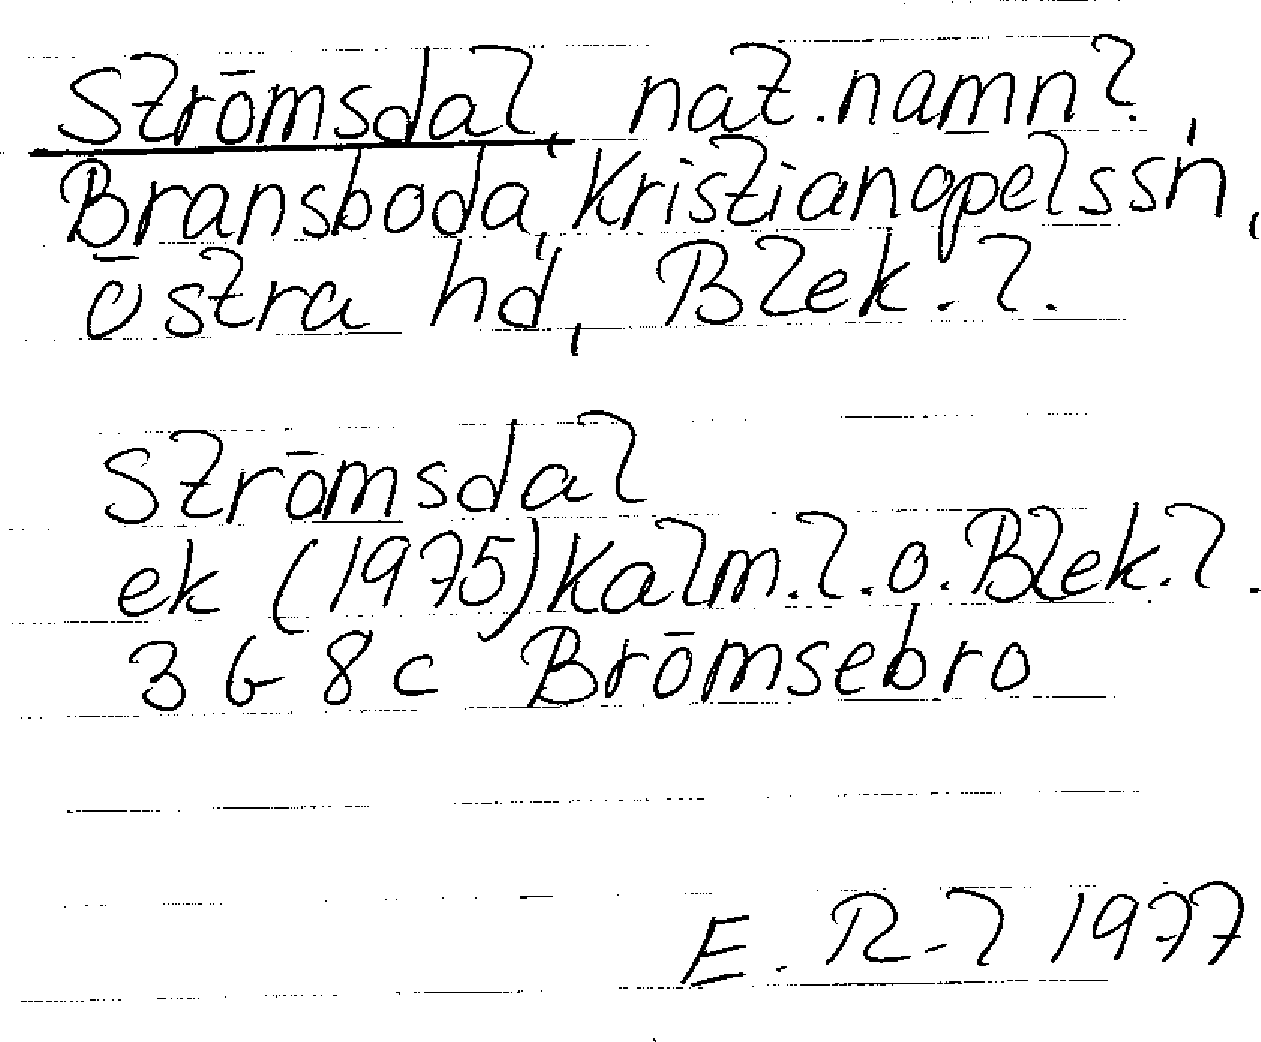 Strömsdal, nat.namn?,
Bransboda, Kristianopelssn,
Östra hd, Blek. l.
Strömsdal
ek (1975) Kalm.l.o.Blek.l.
3 G 8 c Brömsebro
E. R-l 1977